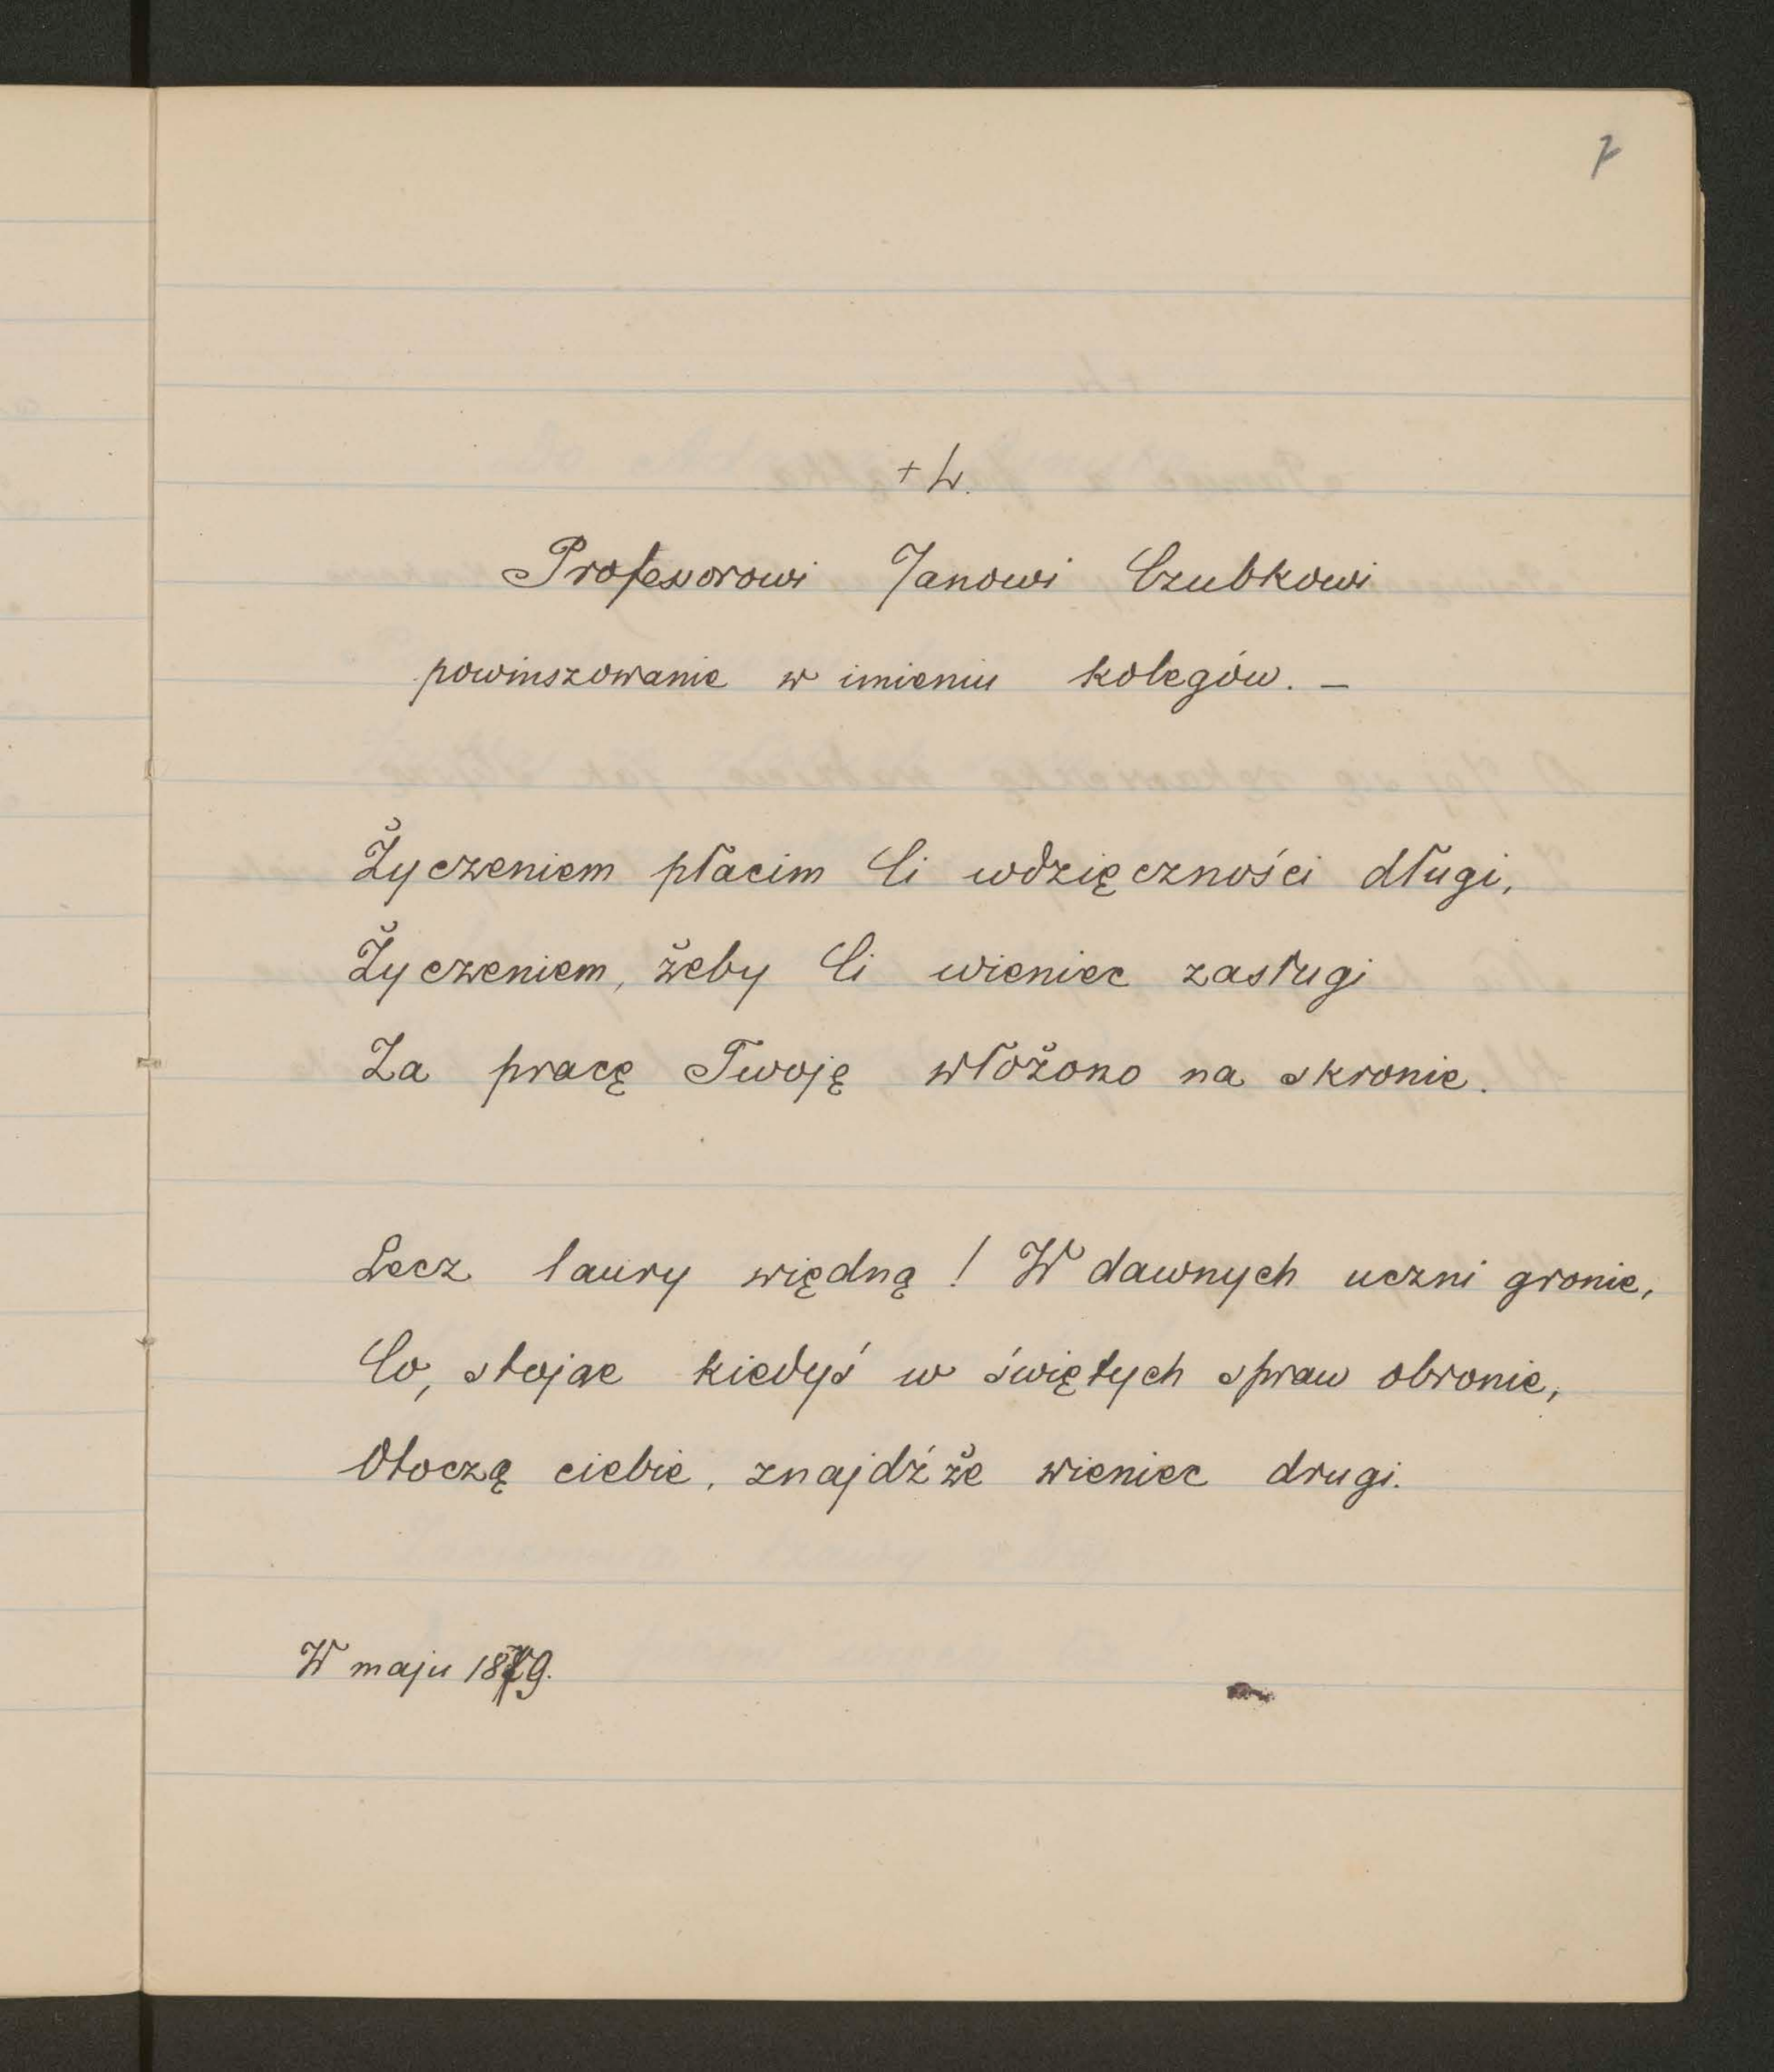 7
+ 4.
Profesorowi Janowi Czubkowi
powinszowanie w imieniu kolegów. –
Życzeniem płacim Ci wdzięczności długi,
Życzeniem, żeby Ci wieniec zasługi
Za pracę Twoję włożono na skronie.
Lecz laury więdną! W dawnych uczni gronie,
Co, stojąc kiedyś w świętych spraw obronie,
Otoczą ciebie, znajdźże wieniec drugi.
W maju 1879.